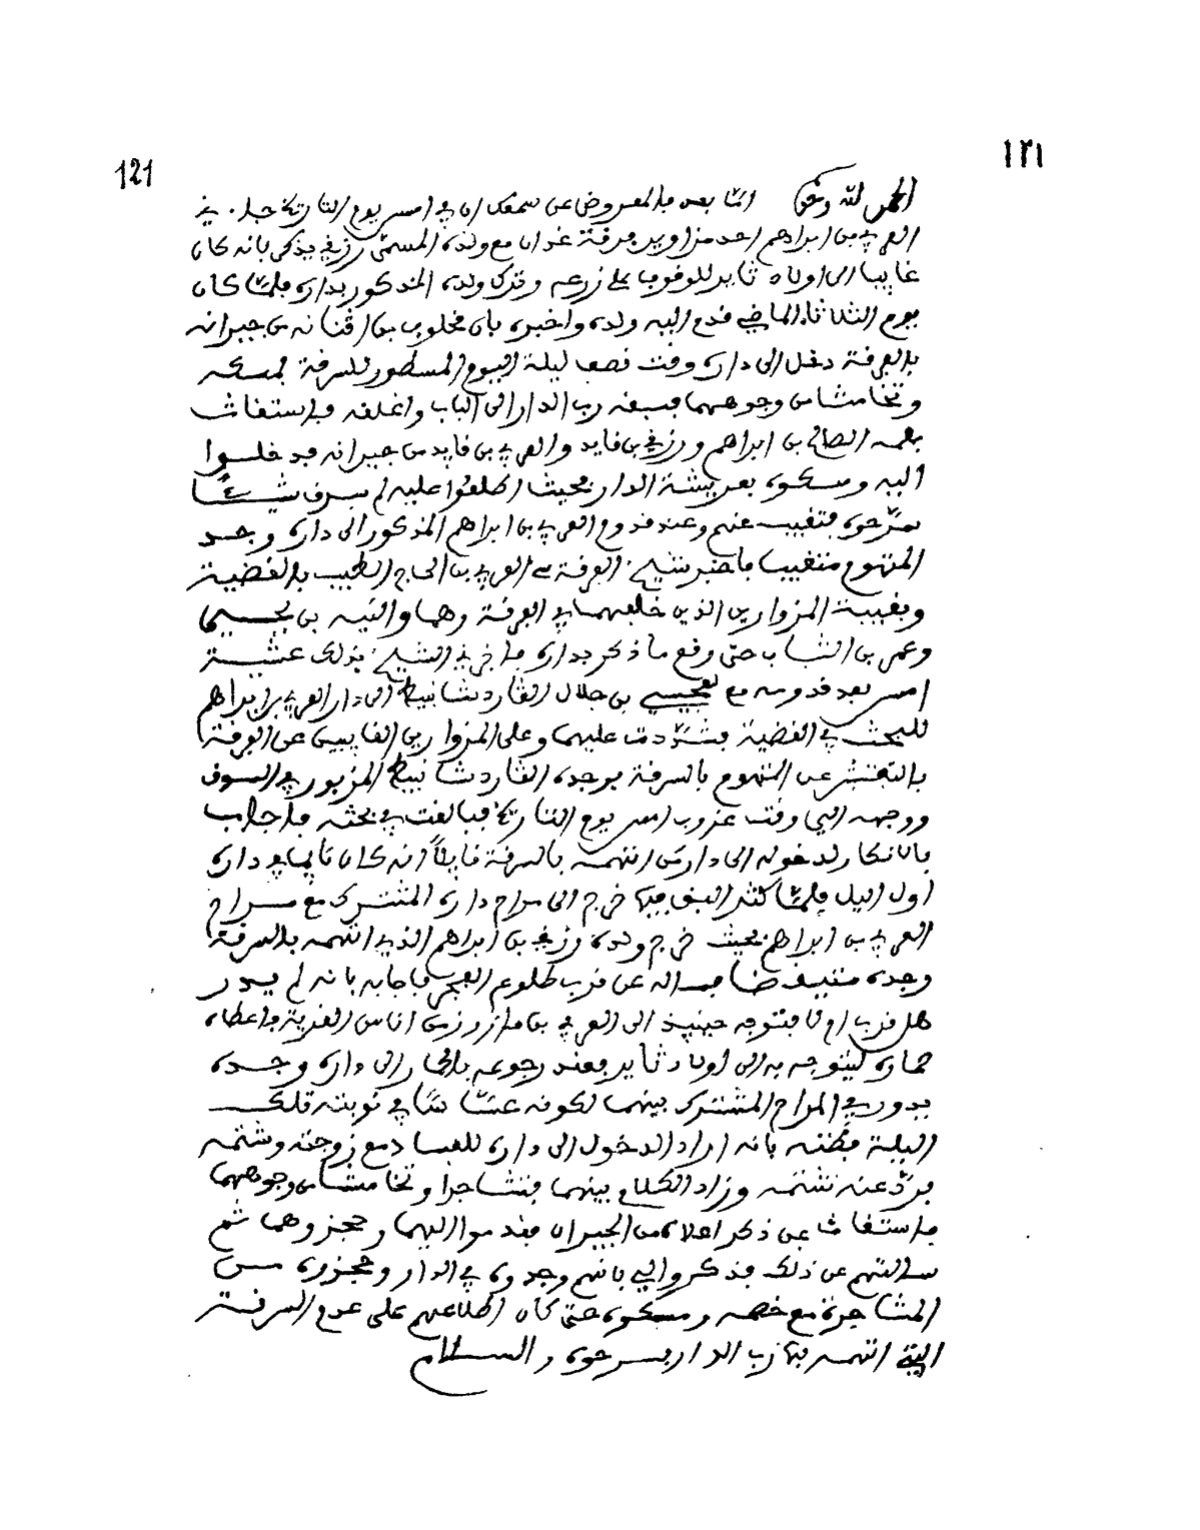 ١٢١
121
الحمد لله وحده اما بعد فالمعروض عن سمعك ان في امس يوم التاريخ جاءني
العربي بن ابراهيم احد مزاوير فرقة غدان مع ولده المسمى رزقي يذكر بانه كان
غايبا الى اولاد ثاير للوقوف على زرعه وترك ولده المذكور بداره فلما كان
يوم الثلاثاء الماضي قدم اليه ولده واخبره بان مخلوف بن اقنانه من جيرانه
بالفرقة دخل الى داره وقت نصف ليلة اليوم المسطور للسرقة فمسكه
وتخامشا من وجوههما فسبقه رب الدار الى الباب واغلقه فاستغاث
بعمه الصالح بن ابراهيم ورزقي بن فايد والعربي بن فايد من جيرانه فدخلوا
اليه ومسكوه بعريشة الدار بحيث اطلعوا عليه لم يسرق شيئا
سرحوه فتغيب عنهم وعند قدوم العربي بن ابراهيم المذكور الى داره وجد
المتهوم متغيبا فاخبر شيخ الفرقة سي العربي بن الحاج الطيب بالقضية
وبغيبة المزوارين الذين خلفهما في الفرقة وهما والنيه بن يحيى
وعمر بن الشاب حتى وقع ما ذكر بداره فاخبرني الشيخ بذلك عشية
امس بعد قدومه مع بن جلال القارد شانبيط الى دار العربي بن ابراهيم
للبحث في القضية فشددت عليهما وعلى المزوارين الغايبين عن الفرقة
بالتفتش عن المتهوم بالسرقة فوجده القارد شانبيط المزبور في السوق
ووجهه الي وقت غروب امس يوم التاريخ فبالغت في بحثه فاجاب
بالانكار لدخوله الى دار من اتهمه بالسرقة قايلا انه كان نايما في داره
اول اليل فلما كثر البق فيها خرج الى مراح داره المشترك مع مراح
العربي بن ابراهيم بحيث خرج ولده رزقي بن ابراهيم الذي اتهمه بالسرقة
وجده متيقضا فساله عن قرب طلوع الفجر فاجابه بانه لم يدر
هل قرب ام لا فتوجه حينيذ الى العربي بن من اناس القرية فاعطاه
حماره ليتوجه به الى اولاد ثاير فعند رجوعه بالحمار الى داره وجده
يدور في المراح المشترك بينهما لكونه عساسا في نوبته تلك
الليلة فظنه بانه اراد الدخول الى داره للفساد مع زوجته وشتمه
فرد عنه شتمه وزاد الكلام بينهما فتشاجرا وتخامشا من وجوههما
فاستغاثا بمن ذكر اعلاه من الجيران فقدموا اليهما وحجزوهما ثم
سالتهم عن ذلك فذكروا الي بانهم وجدوه في الدار وحجزوه من
المشاجرة مع خصمه ومسكوه حتى كان اطلاعهم على عدم السرقة
التي اتهمه بها رب الدار بسرحوه والسلام